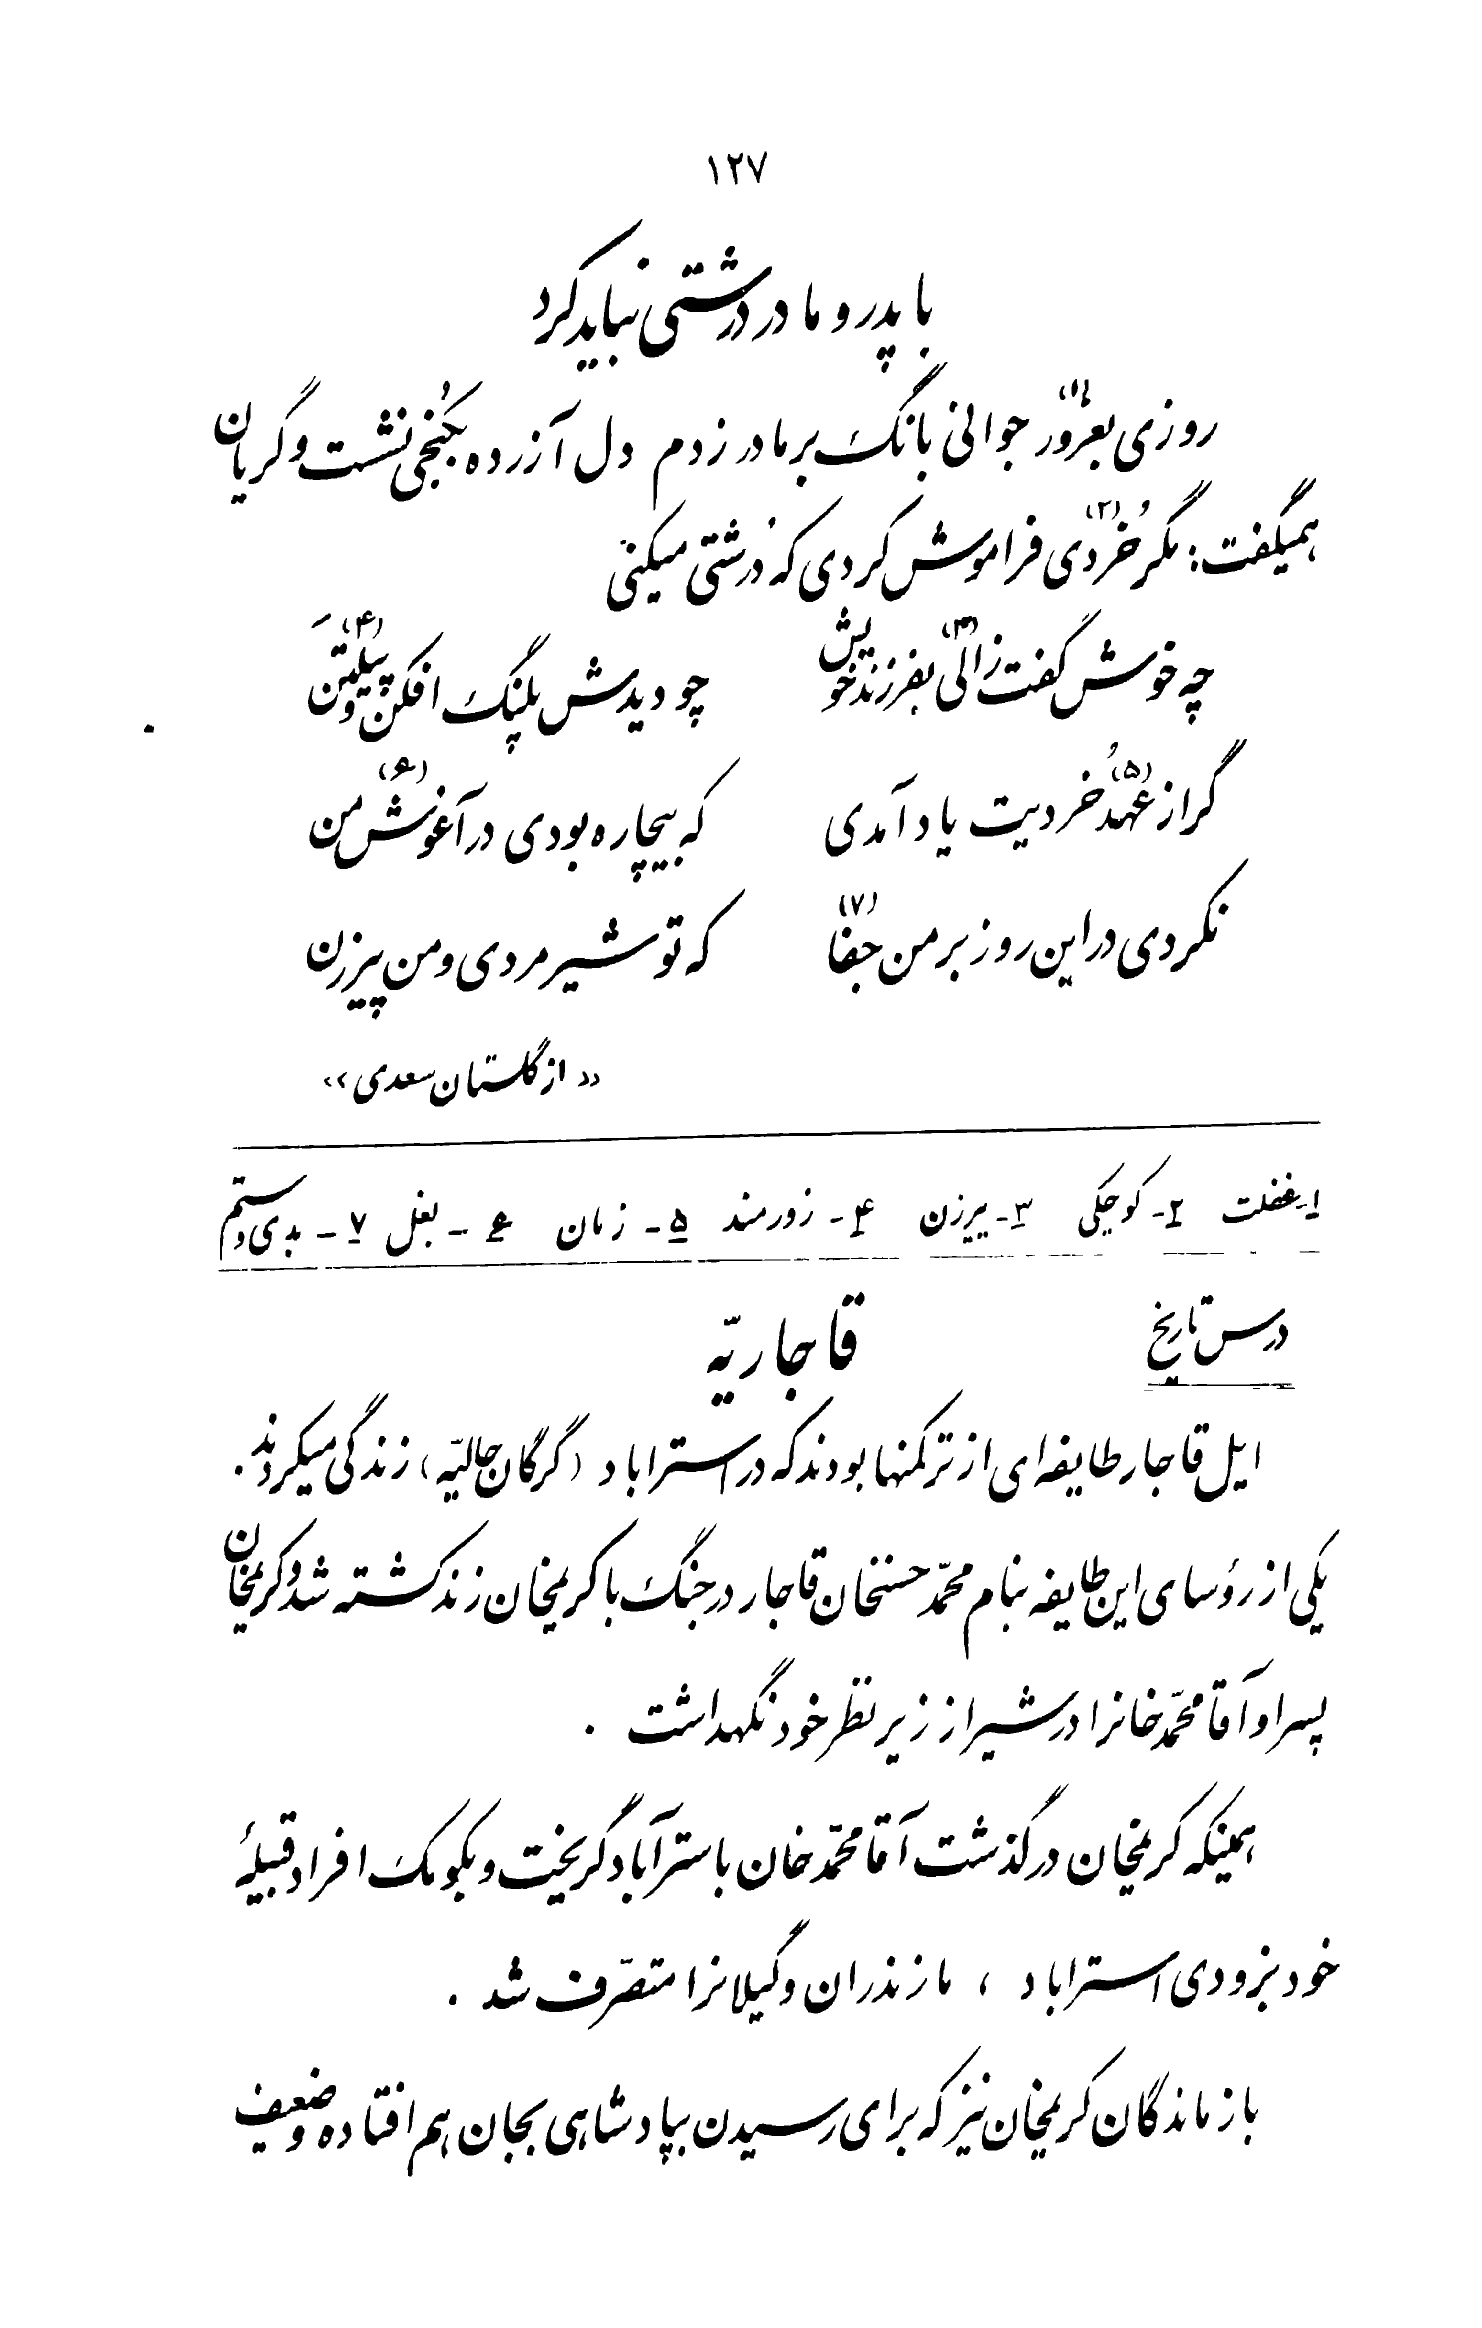 ۱۲۷
با پدر و مادر درشتی نباید کرد
روزی بغرور (۱) جوانی بانگ بر مادر زدم دل آزرده بکُنجی نشست و گریان
همیگفت: مگر خُردی (۲) فراموش کردی که دُرشتی میکنی
چه خوش گفت زالی (۳) بفرزند خویش چو دیدش پلنگ افکن و پیلتن (۴)
گر از عهد (۵) خُردیت یاد آمدی که بیچاره بودی در آغوش (۶) من
نکردی در این روز بر من جفا (۷) که تو شیر مردی و من پیرزن
«از گلستان سعدی»
۱- غفلت ۲- کوچکی ۳- پیرزن ۴- زورمند ۵- زمان ۶- بغل ۷- بدی و ستم
درس تاریخ
قاجاریّه
ایل قاجار طایفه‌ای از ترکمنها بودند که در استراباد (گرگان حالیّه) زندگی میکردند.
یکی از رؤسای این طایفه بنام محمّد حسنخان قاجار در جنگ با کریمخان زند کشته شد و کریمخان
پسر او آقا محمّد خانرا در شیراز زیر نظر خود نگهداشت .
همینکه کریمخان در گذشت آقا محمّد خان باسترآباد گریخت و بکومک افراد قبیلهٔ
خود بزودی استراباد ، مازندران و گیلانرا متصرّف شد .
بازماندگان کریمخان نیز که برای رسیدن بپادشاهی بجان هم افتاده و ضعیف